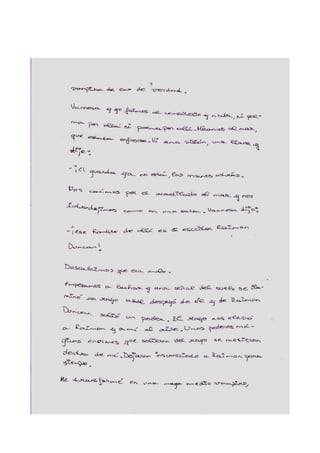 vampira de eso de verdad.
Vanessa y yo fuimos al cementerio y nada, ni
ma por allí ni poema por allí. Miramos al mar,
que estaba enfrente. Vi una visión, una llave y
dije:
-¡El guarda ya no está, las manos atadas.
Nos caímos por el acantilado al mar y nos
introdujimos como en una cueva. Vanessa dijo:
-¡Ese hombre de allí es el escritor Raiman
Duncan!
Descubrimos que era malo.
Empezamos a luchar y una señal del suelo se ilu-
minó un rayo azul despegó de él y de Raiman
Duncan salió un poder. El rayo nos elevó
a Raiman y a mí al aire. Unos poderes má-
gicos enormes que salieron del rayo se metieron
dentro de mí. Dejaron inconsciente a Raiman para
siempre.
Me transformé en una maga medio vampira,